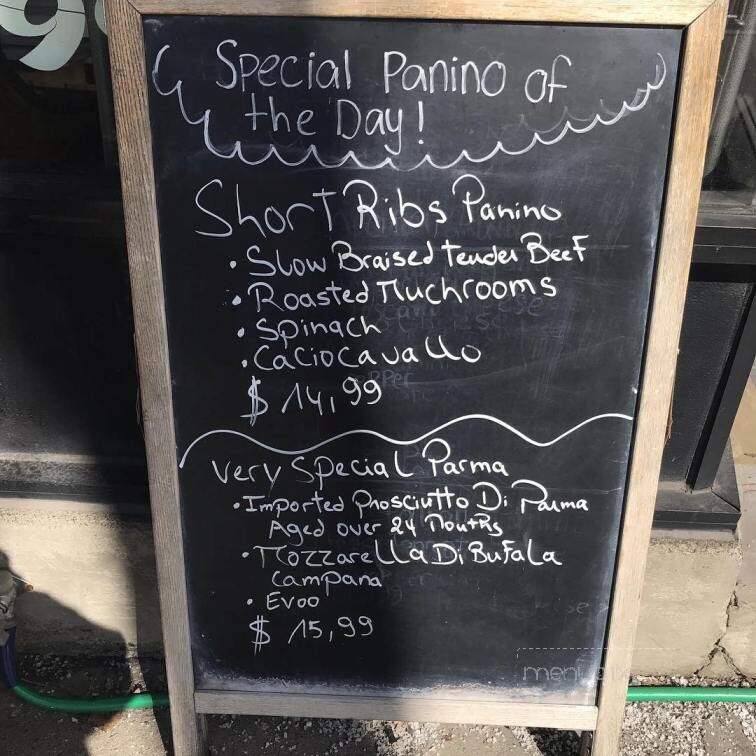 9
Special Panino of
the Day!
Short Ribs Panino
• Slow Braised tender Beef
• Roasted Muchrooms
• Spinach
• Caciocavallo
$ 14,99
Very Special Parma
• Imported Prosciutto Di Parma
Aged over 24 Months
• Mozzarella Di Bufala
Campana
• Evoo
$ 15,99